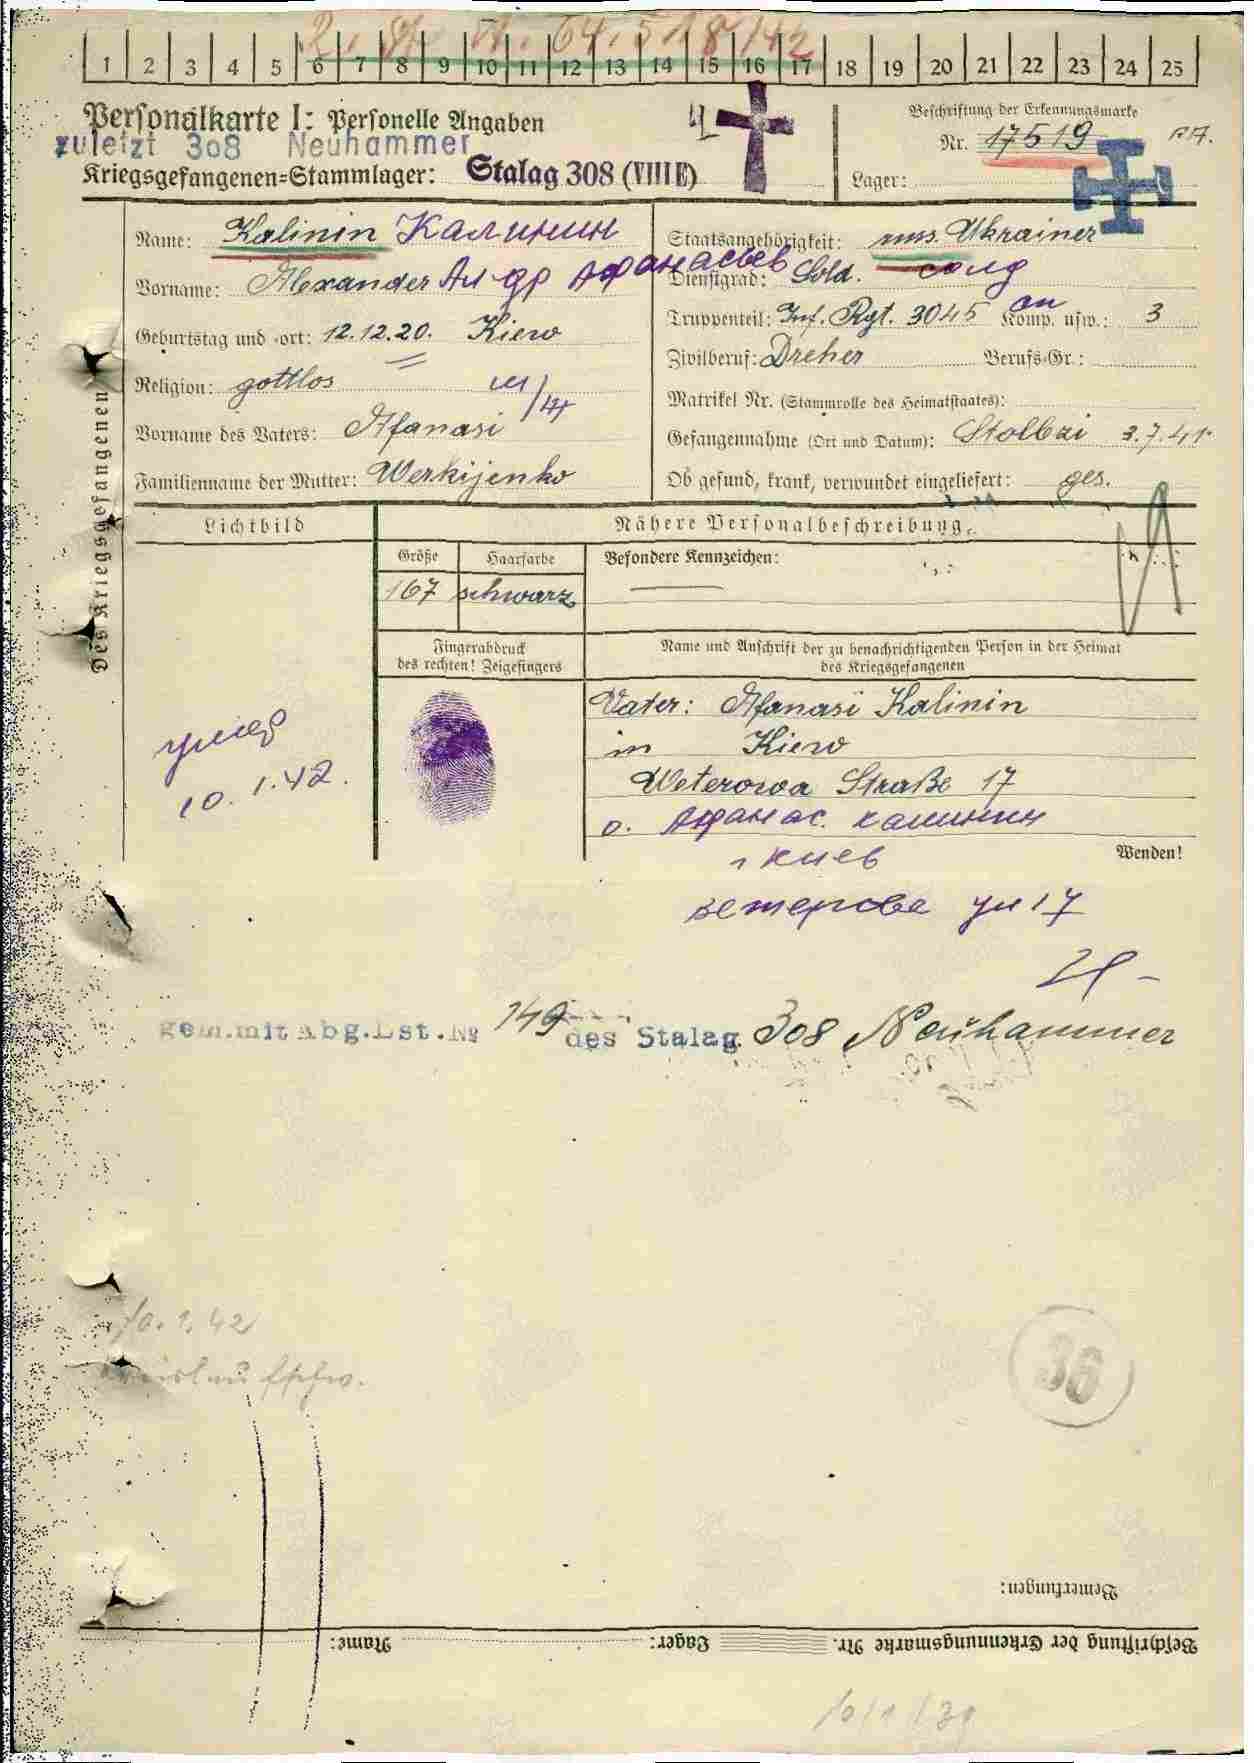 2. 64.518/42
1 2 3 4 5 6 7 8 9 10 11 12 13 14 15 16 17 18 19 20 21 22 23 24 25
Personalkarte I: Personelle Angaben
zuletzt 308 Neuhammer
Kriegsgefangenen-Stammlager: Stalag 308 (VIII E)
Beschriftung der Erkennungsmarke
Nr. 17519
Lager:
Des Kriegsgefangenen
Name: Kalinin Калинин
Vorname: Alexander Ал др Афанасьев
Geburtstag und -ort: 12.12.20. Kiew
Religion: gottlos
Vorname des Vaters: Afanasi
Familienname der Mutter: Werkijenko
Staatsangehörigkeit: russ. Ukrainer
Dienstgrad: Sold. солд
Truppenteil: Inf. Rgt. 3045 Komp. usw.: 3
Zivilberuf: Dreher Berufs-Gr.:
Matrikel Nr. (Stammrolle des Heimatstaates):
Gefangennahme (Ort und Datum): Stolbzi 3.7.41
Ob gesund, krank, verwundet eingeliefert: ges.
Lichtbild
Nähere Personalbeschreibung
Größe Haarfarbe Besondere Kennzeichen:
167 schwarz
Fingerabdruck
des rechten! Zeigefingers
Name und Anschrift der zu benachrichtigenden Person in der Heimat
des Kriegsgefangenen
Vater: Afanasi Kalinin
in Kiew
Weterowa Straße 17
о. Афанас. калинин
г киев
ветерова ул 17
Wenden!
умер
10.1.42.
gem.mit Abg.Lst.№ 149 des Stalag 308 Neuhammer
10.1.42
36
Bemerkungen:
Beschriftung der Erkennungsmarke Nr. Lager: Name: